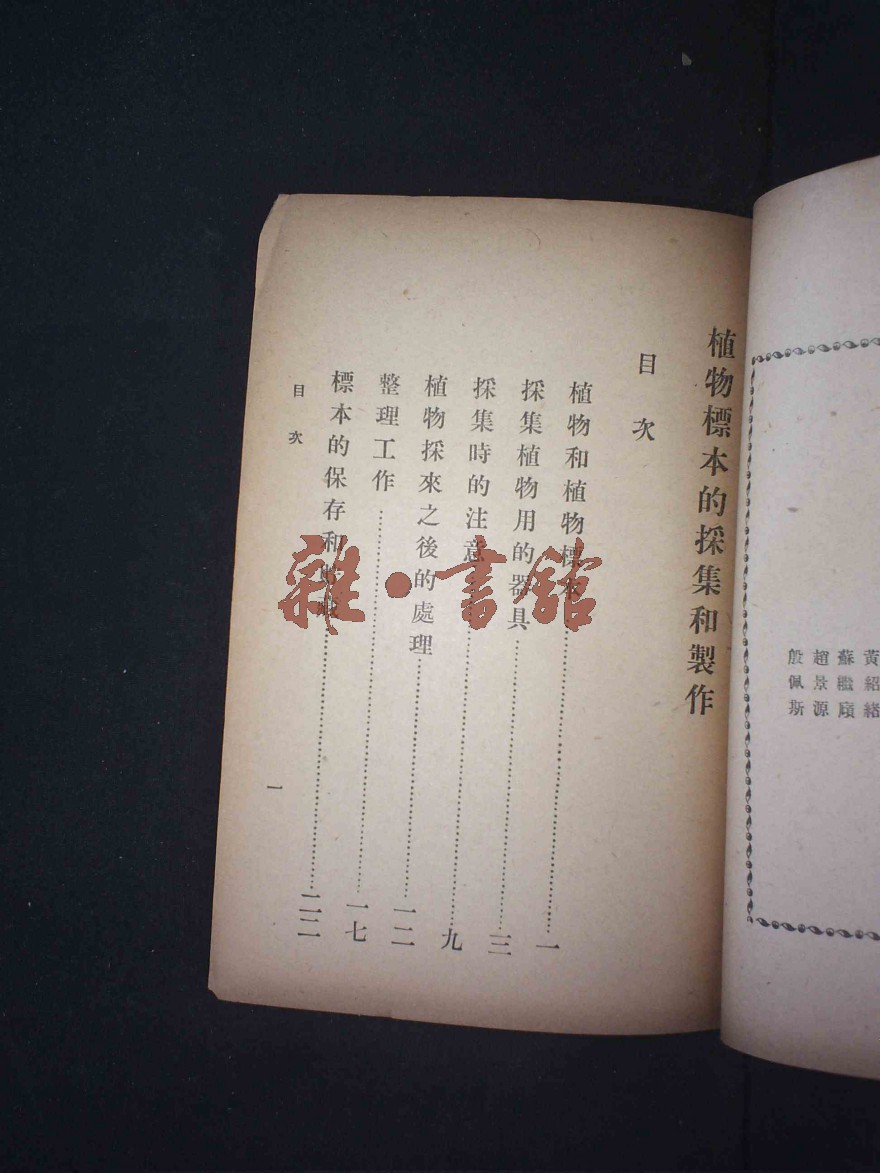 黃紹緒
蘇繼廎
趙景源
殷佩斯
植物標本的採集和製作
目次
植物和植物標本……一
採集植物用的器具……三
採集時的注意……九
植物採來之後的處理……一二
整理工作……一七
標本的保存和藏……二二
目次
一
雜·書館